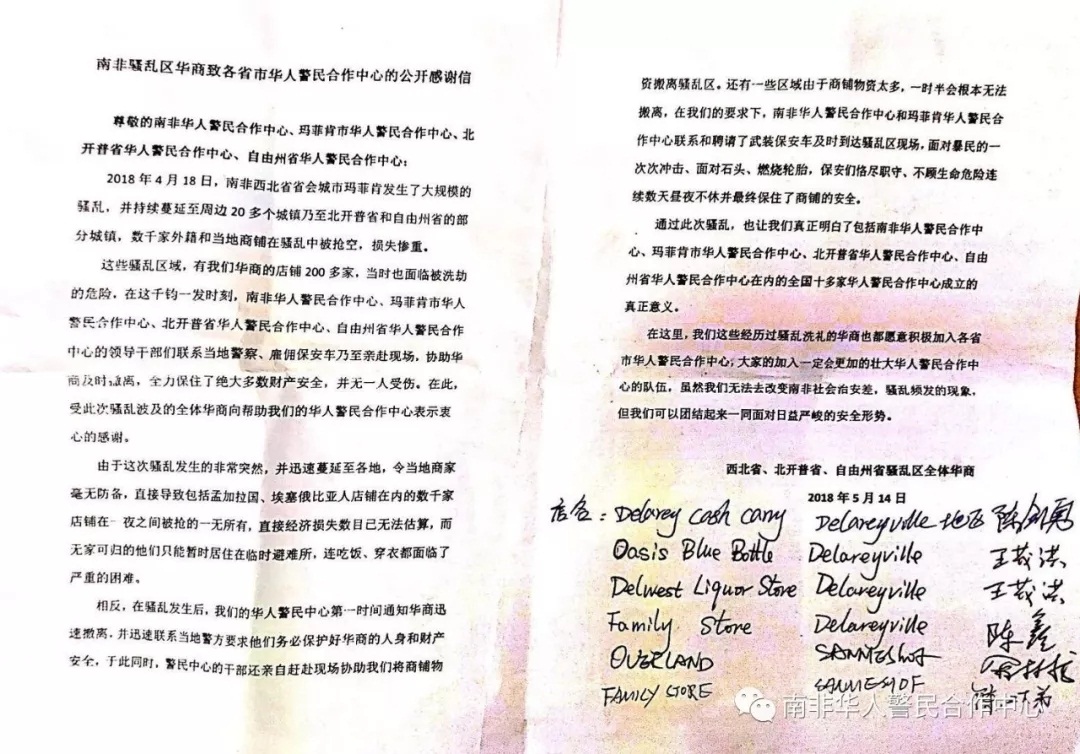 南非骚乱区华商致各省市华人警民合作中心的公开感谢信
尊敬的南非华人警民合作中心、玛菲肯市华人警民合作中心、北
开普省华人警民合作中心、自由州省华人警民合作中心：
2018年4月18日，南非西北省省会城市玛菲肯发生了大规模的
骚乱，并持续蔓延至周边20多个城镇乃至北开普省和自由州省的部
分城镇，数千家外籍和当地商铺在骚乱中被抢空，损失惨重。
这些骚乱区域，有我们华商的店铺200多家，当时也面临被洗劫
的危险，在这千钧一发时刻，南非华人警民合作中心、玛菲肯市华人
警民合作中心、北开普省华人警民合作中心、自由州省华人警民合作
中心的领导干部们联系当地警察、雇佣保安车乃至亲赴现场，协助华
商及时撤离，全力保住了绝大多数财产安全，并无一人受伤。在此，
受此次骚乱波及的全体华商向帮助我们的华人警民合作中心表示衷
心的感谢。
由于这次骚乱发生的非常突然，并迅速蔓延至各地，令当地商家
毫无防备，直接导致包括孟加拉国、埃塞俄比亚人店铺在内的数千家
店铺在一夜之间被抢的一无所有，直接经济损失数目已无法估算，而
无家可归的他们只能暂时居住在临时避难所，连吃饭、穿衣都面临了
严重的困难。
相反，在骚乱发生后，我们的华人警民中心第一时间通知华商迅
速撤离，并迅速联系当地警方要求他们务必保护好华商的人身和财产
安全，于此同时，警民中心的干部还亲自赶赴现场协助我们将商铺物
资搬离骚乱区。还有一些区域由于商铺物资太多，一时半会根本无法
搬离，在我们的要求下，南非华人警民合作中心和玛菲肯华人警民合
作中心联系和聘请了武装保安车及时到达骚乱区现场，面对暴民的一
次次冲击、面对石头、燃烧轮胎，保安们恪尽职守、不顾生命危险连
续数天昼夜不休并最终保住了商铺的安全。
通过此次骚乱，也让我们真正明白了包括南非华人警民合作中
心、玛菲肯市华人警民合作中心、北开普省华人警民合作中心、自由
州省华人警民合作中心在内的全国十多家华人警民合作中心成立的
真正意义。
在这里，我们这些经历过骚乱洗礼的华商也都愿意积极加入各省
市华人警民合作中心，大家的加入一定会更加的壮大华人警民合作中
心的队伍，虽然我们无法去改变南非社会治安差，骚乱频发的现象，
但我们可以团结起来一同面对日益严峻的安全形势。
西北省、北开普省、自由州省骚乱区全体华商
2018年5月14日
店名：Delarey cash carry Delareyville 地区 陈剑勇
Oasis Blue Bottle Delareyville 王茂洪
Delwest Liquor Store Delareyville 王茂洪
Family Store Delareyville 陈鑫
OVERLAND SANNIESHOF
FAMILY STORE SANNIESHOF
南非华人警民合作中心